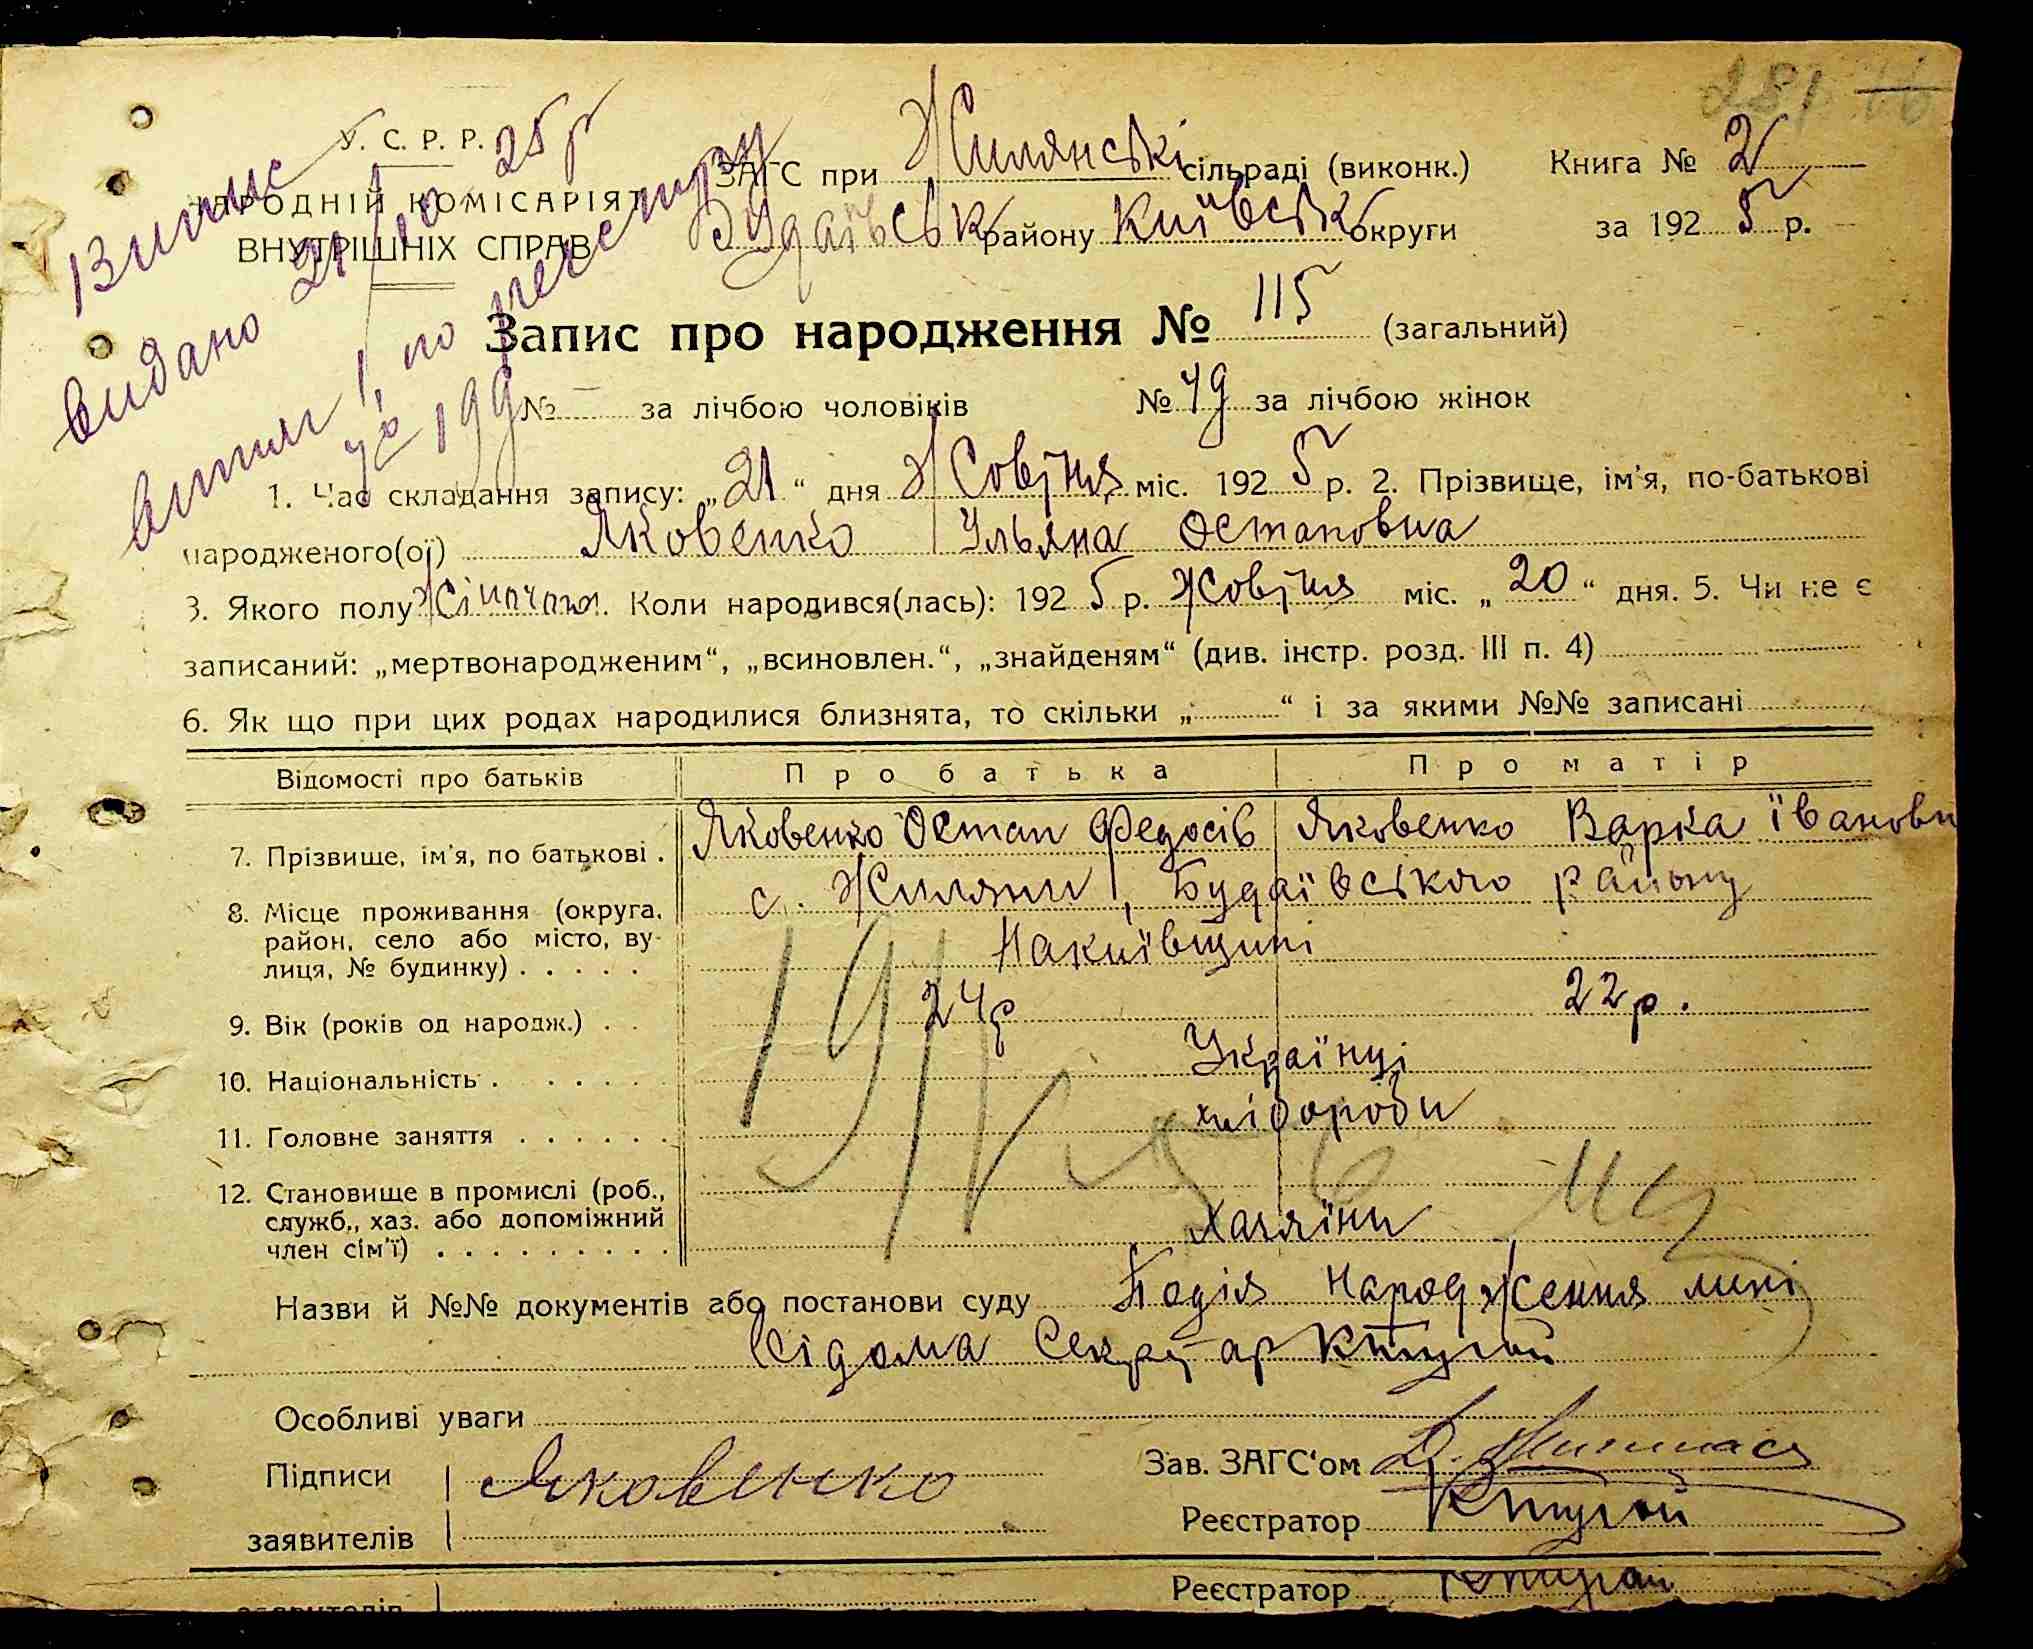 281
У. С. Р. Р.
НАРОДНІЙ КОМІСАРІЯТ
ВНУТРІШНІХ СПРАВ
Виписс
видано 21/10 25р
по реєстру
№ 199
ЗАГС при Жилянські сільраді (виконк.) Книга № 2
Будаївськ району Київськ округи за 1925 р.
Запис про народження № 115 (загальний)
№ — за лічбою чоловіків № 49 за лічбою жінок
1. Час складання запису: „21“ дня Жовтня міс. 1925 р. 2. Прізвище, ім'я, по-батькові
народженого(ої) Яковенко Ульяна Остаповна
3. Якого полу Жіночого. Коли народився(лась): 1925 р. Жовтня міс. „20“ дня. 5. Чи не є
записаний: „мертвонародженим“, „всиновлен.“, „знайденям“ (див. інстр. розд. III п. 4)
6. Як що при цих родах народилися близнята, то скільки „ “ і за якими №№ записані
Відомості про батьків Про батька Про матір
7. Прізвище, ім'я, по батькові . Яковенко Остап Федосів Яковенко Варка Івановн
8. Місце проживання (округа, с. Жиляни, Будаївського району
район, село або місто, ву-
лиця, № будинку) . . . . . На київщині
9. Вік (років од народж.) . . 24р 22р.
10. Національність . . . . . Українці
11. Головне заняття . . . . . . хлібороби
12. Становище в промислі (роб.,
служб., хаз. або допоміжний
член сім'ї) . . . . . . . . . Хазяїни
Назви й №№ документів або постанови суду Подія народження мині
відома Секретар
Особливі уваги
Підписи Яковенко Зав. ЗАГС'ом
заявителів Реєстратор
заявителів Реєстратор